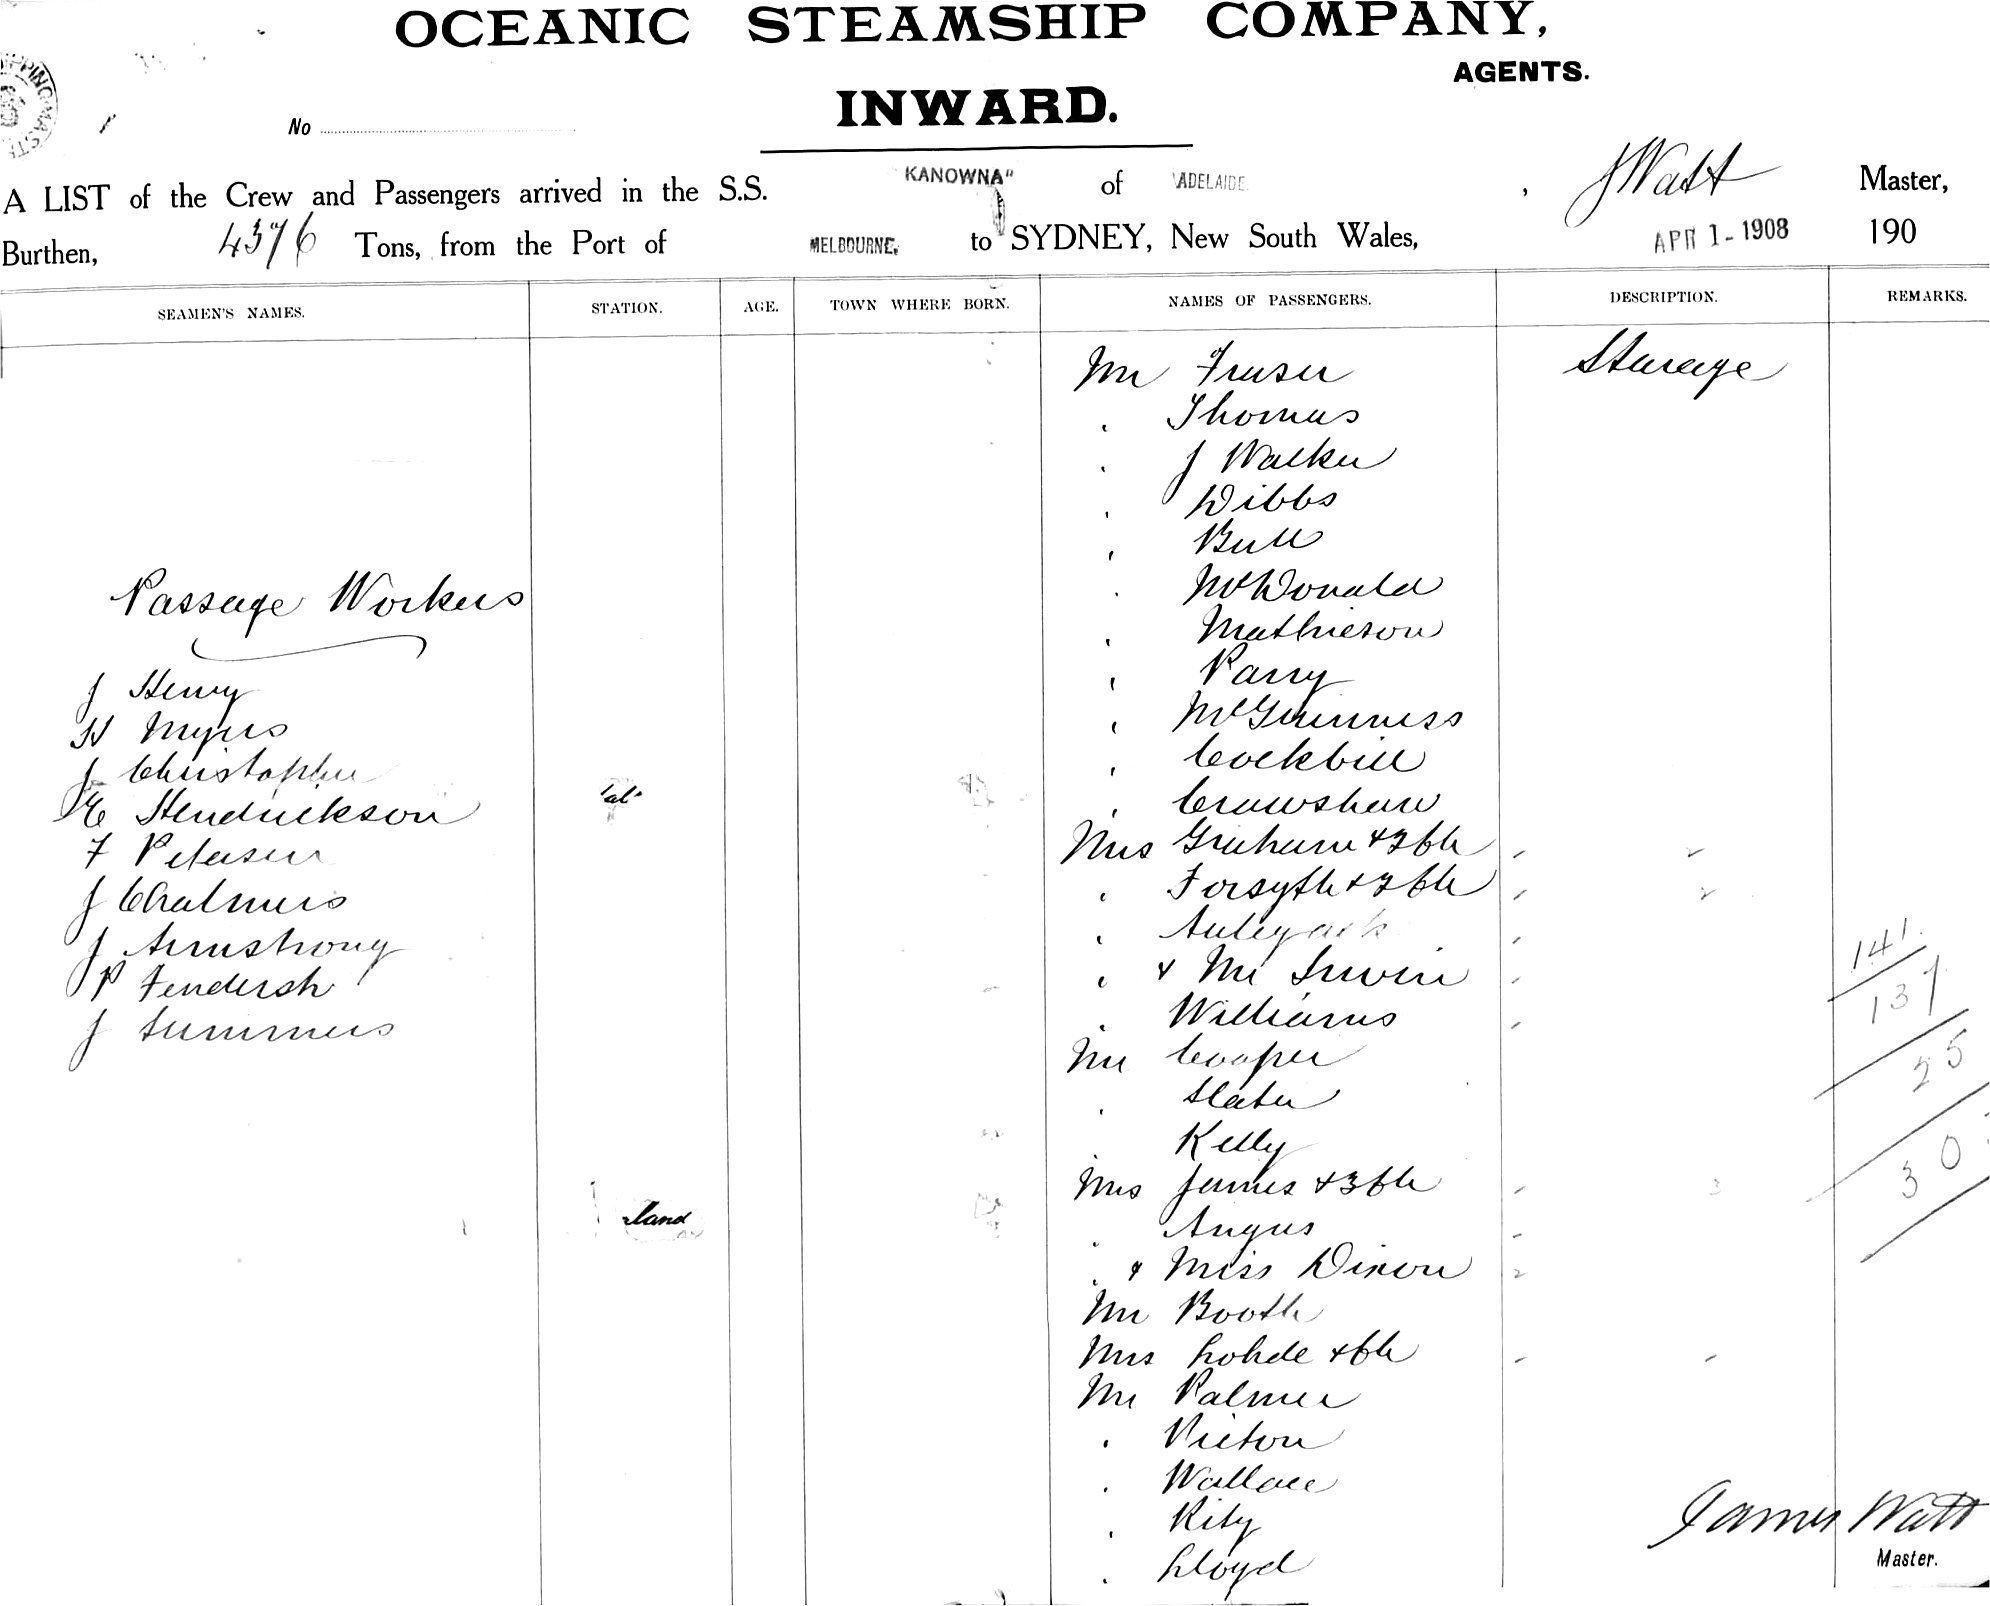 OCEANIC STEAMSHIP COMPANY,
AGENTS.
INWARD.
No
A LIST of the Crew and Passengers arrived in the S.S. KANOWNA" of ADELAIDE, J Watt Master,
Burthen, 4376 Tons, from the Port of MELBOURNE, to SYDNEY, New South Wales, APR 1 - 1908 190
SEAMEN'S NAMES. STATION. AGE. TOWN WHERE BORN. NAMES OF PASSENGERS. DESCRIPTION. REMARKS.
Mr Fraser Steerage
Thomas
J Walker
Dibbs
Bull
Passage Workers
McDonald
Mathieson
Parry
J Henry
McGuinness
H Myers
Cockbill
J Christopher
Crawshaw
E Hendrickson
Mrs Graham + 2 ch
F Petersen
Forsyth + 2 ch
J Chalmers
J Armstrong
141.
+ Mr Irwin
P Fendersh
137
Williams
J Summers
Mr Cooper
25
Slater
Kelly
Mrs James + 3 ch 3
30
land
Angus
+ Miss Dixon 2
Mr Booth
Mrs Lohde + ch
Mr Palmer
Picton
Wallace
Rity
Lloyd
James Watt
Master.